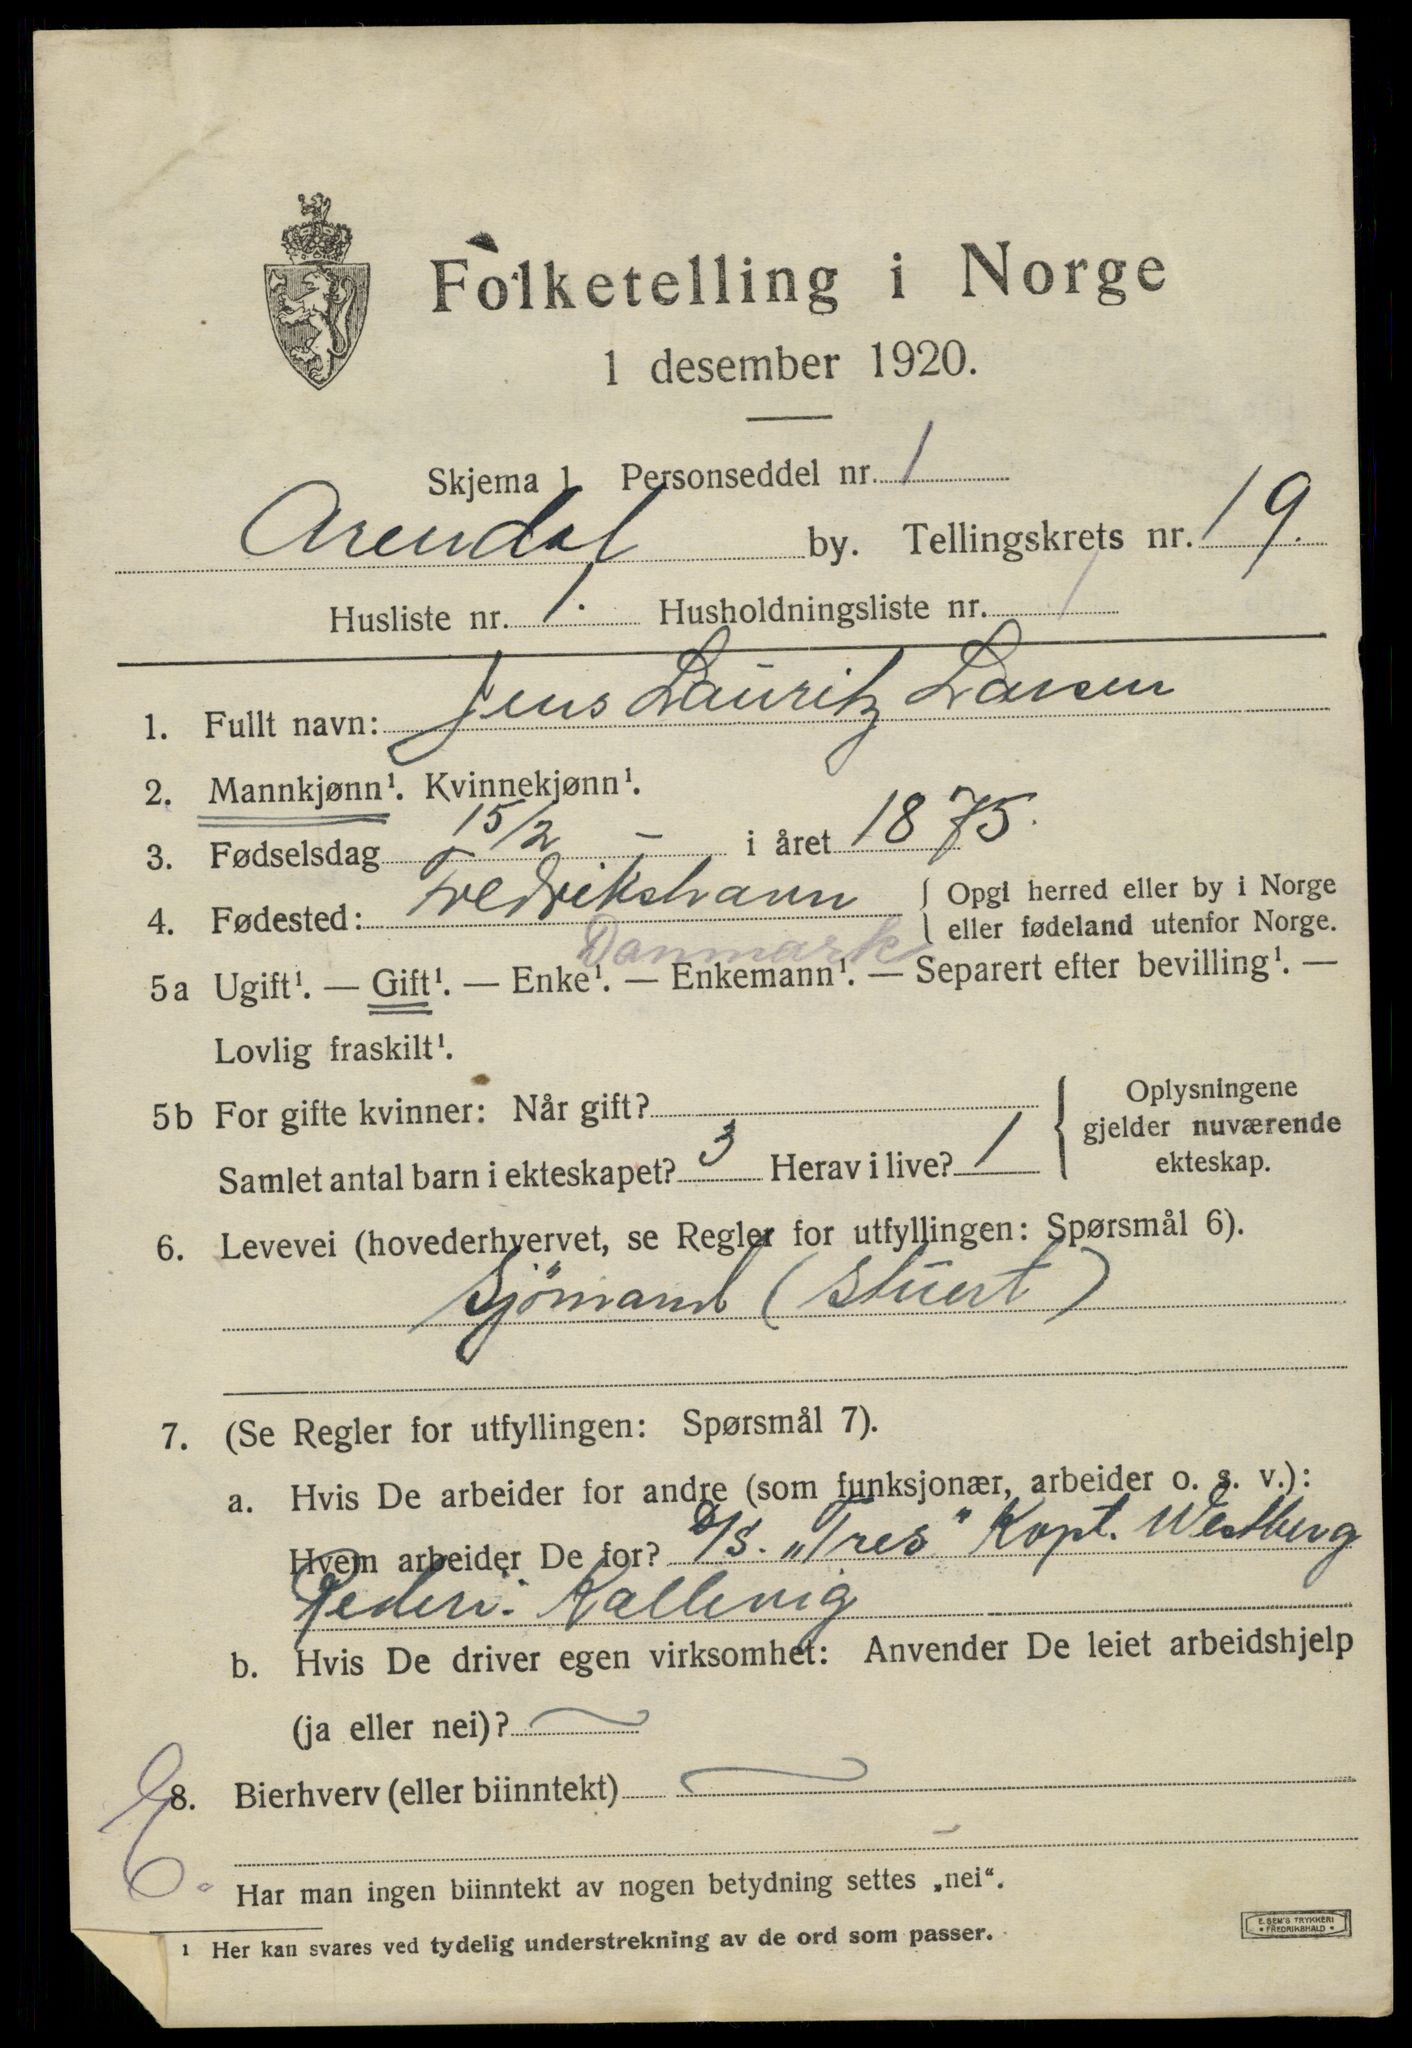 Folketelling i Norge
1 desember 1920.
Skjema 1 Personseddel nr. 1
Arendal by. Tellingskrets nr. 19.
Husliste nr. 1. Husholdningsliste nr. 1
1. Fullt navn: Jens Lauritz Larsen
2. Mannkjønn¹. Kvinnekjønn¹.
3. Fødselsdag 15/2 – i året 1875.
4. Fødested: Fredrikshavn { Opgi herred eller by i Norge
eller fødeland utenfor Norge.
Danmark
5a Ugift¹. — Gift¹. — Enke¹. — Enkemann¹. — Separert efter bevilling¹. —
Lovlig fraskilt¹.
5b For gifte kvinner: Når gift?
Samlet antal barn i ekteskapet? 3 Herav i live? 1
{ Oplysningene
gjelder nuværende
ekteskap.
6. Levevei (hovederhvervet, se Regler for utfyllingen: Spørsmål 6).
Sjömand (stuert)
7. (Se Regler for utfyllingen: Spørsmål 7).
a. Hvis De arbeider for andre (som funksjonær, arbeider o. s. v.):
Hvem arbeider De for? D/S. „Tres" Kapt. Westberg
Rederi: Kallevig
b. Hvis De driver egen virksomhet: Anvender De leiet arbeidshjelp
(ja eller nei)?
8. Bierhverv (eller biinntekt)
Har man ingen biinntekt av nogen betydning settes „nei“.
¹ Her kan svares ved tydelig understrekning av de ord som passer.
E. SEM'S TRYKKERI
* FREDRIKSHALD *